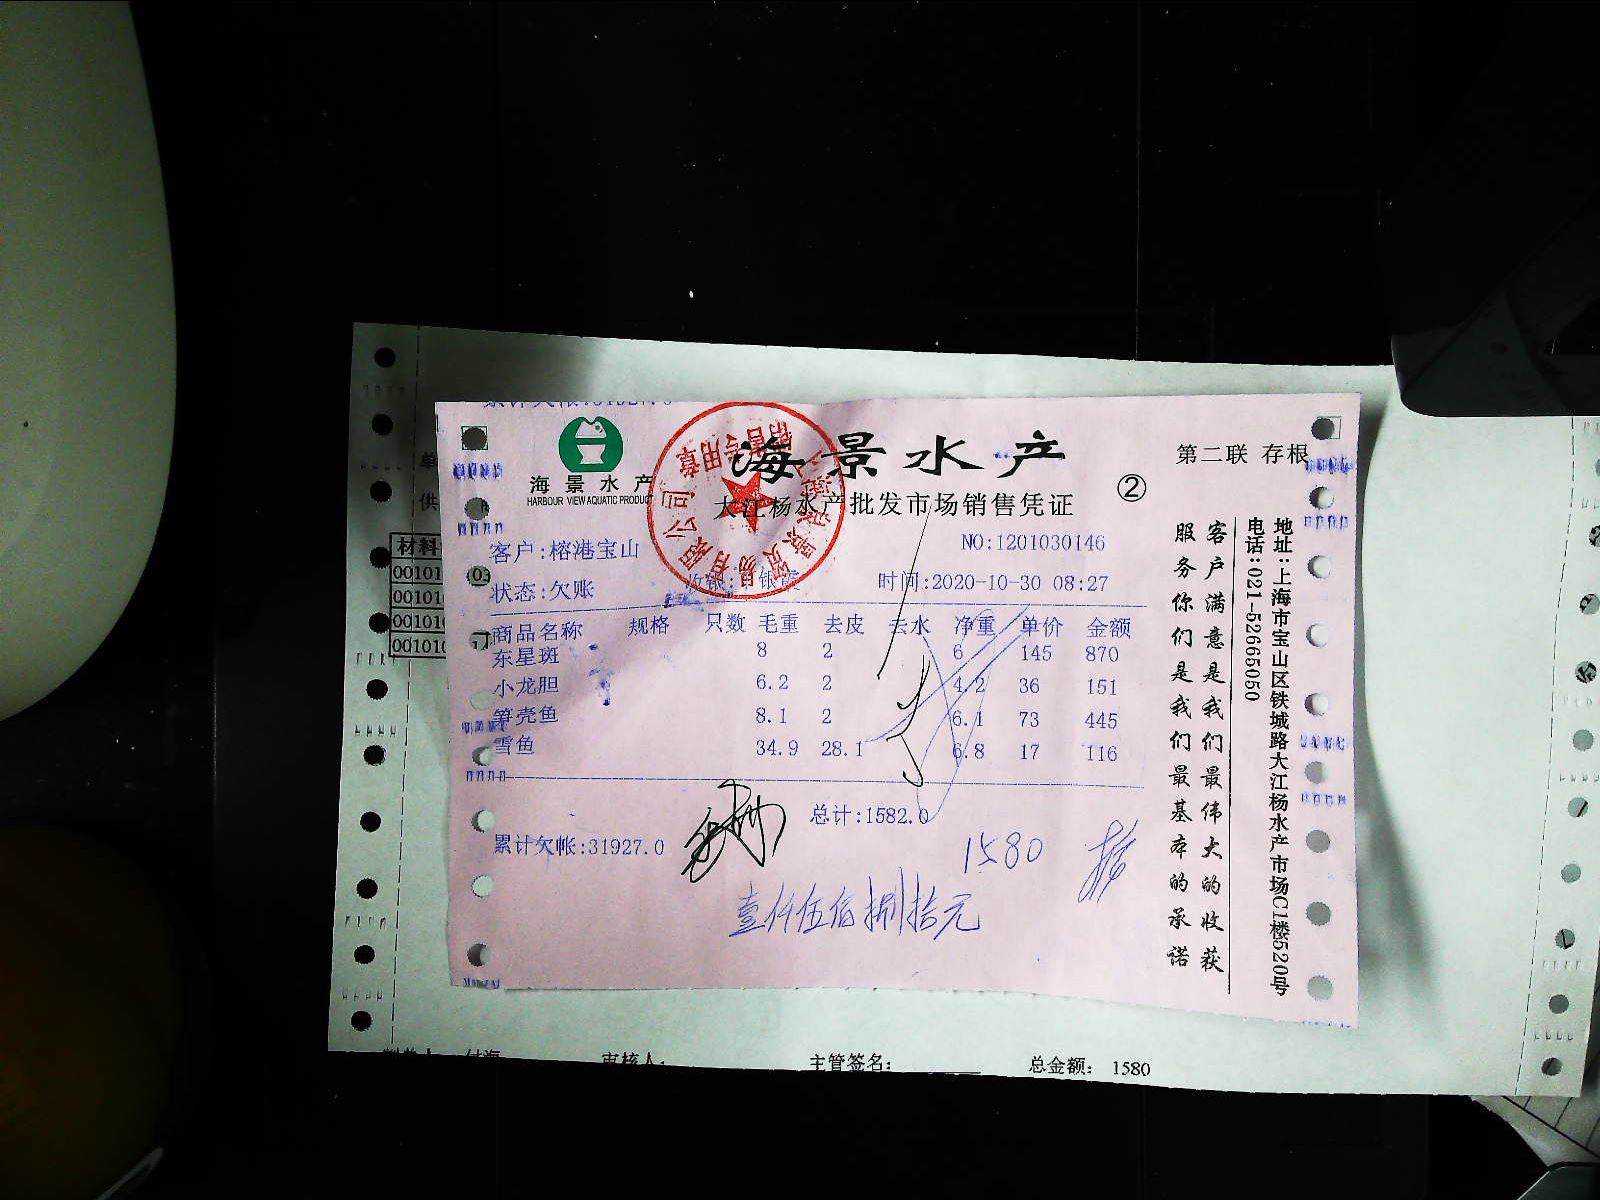 海景水产
HARBOUR VIEW AQUATIC PRODUCT
海景水产
大江杨水产批发市场销售凭证
②
第二联 存根
客户:榕港宝山
NO:1201030146
状态:欠账
时间:2020-10-30 08:27
商品名称 规格 只数 毛重 去皮 去水 净重 单价 金额
东星斑 8 2 6 145 870
小龙胆 6.2 2 4.2 36 151
笋壳鱼 8.1 2 6.1 73 445
雪鱼 34.9 28.1 6.8 17 116
总计:1582.0
累计欠帐:31927.0
1580
壹仟伍佰捌拾元
客户满意是我们最伟大的收获
服务你们是我们最基本的承诺
地址:上海市宝山区铁城路大江杨水产市场C1楼520号
电话:021-52665050
销售专用章
有限公司
单
供
材料
00101
00101
00101
00101
03
审核人:
主管签名:
总金额: 1580